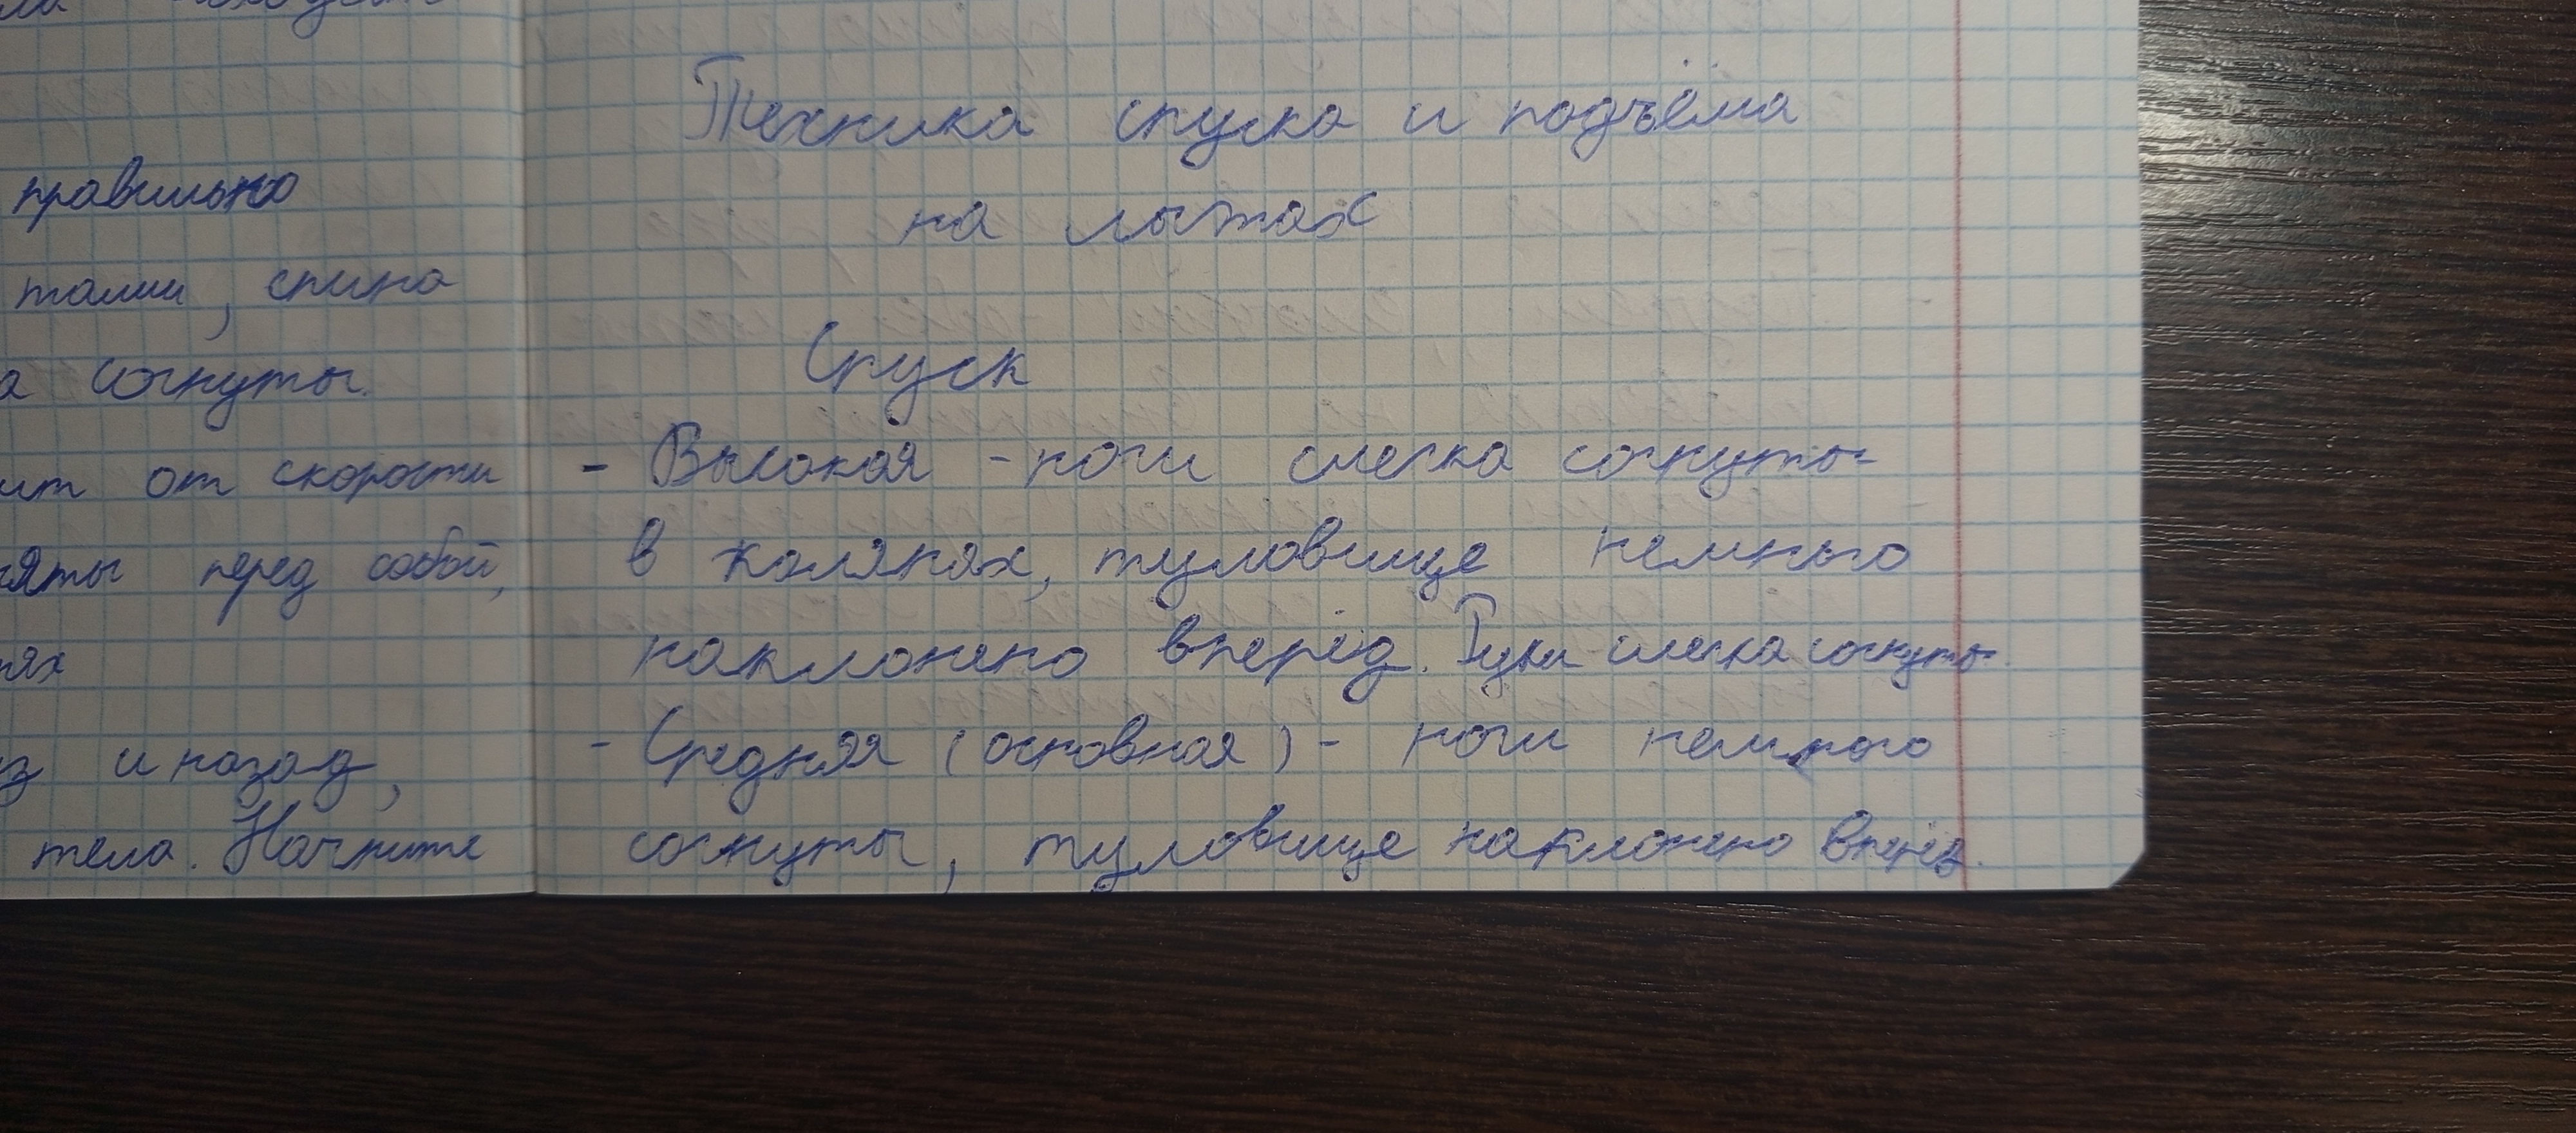 правильно
талии, спина
а согнуты.
ит от скорости
няты перед собой,
нях
из и назад,
тела. Начните
Техника спуска и подъёма
на лытах
Спуск
- Высокая - ноги слегка согнуты
в колянях, туловище немного
наклонено вперёд. Руки слегка согнуты.
- Средняя (основная) - ноги немного
согнуты, туловище наклонено вперёд.